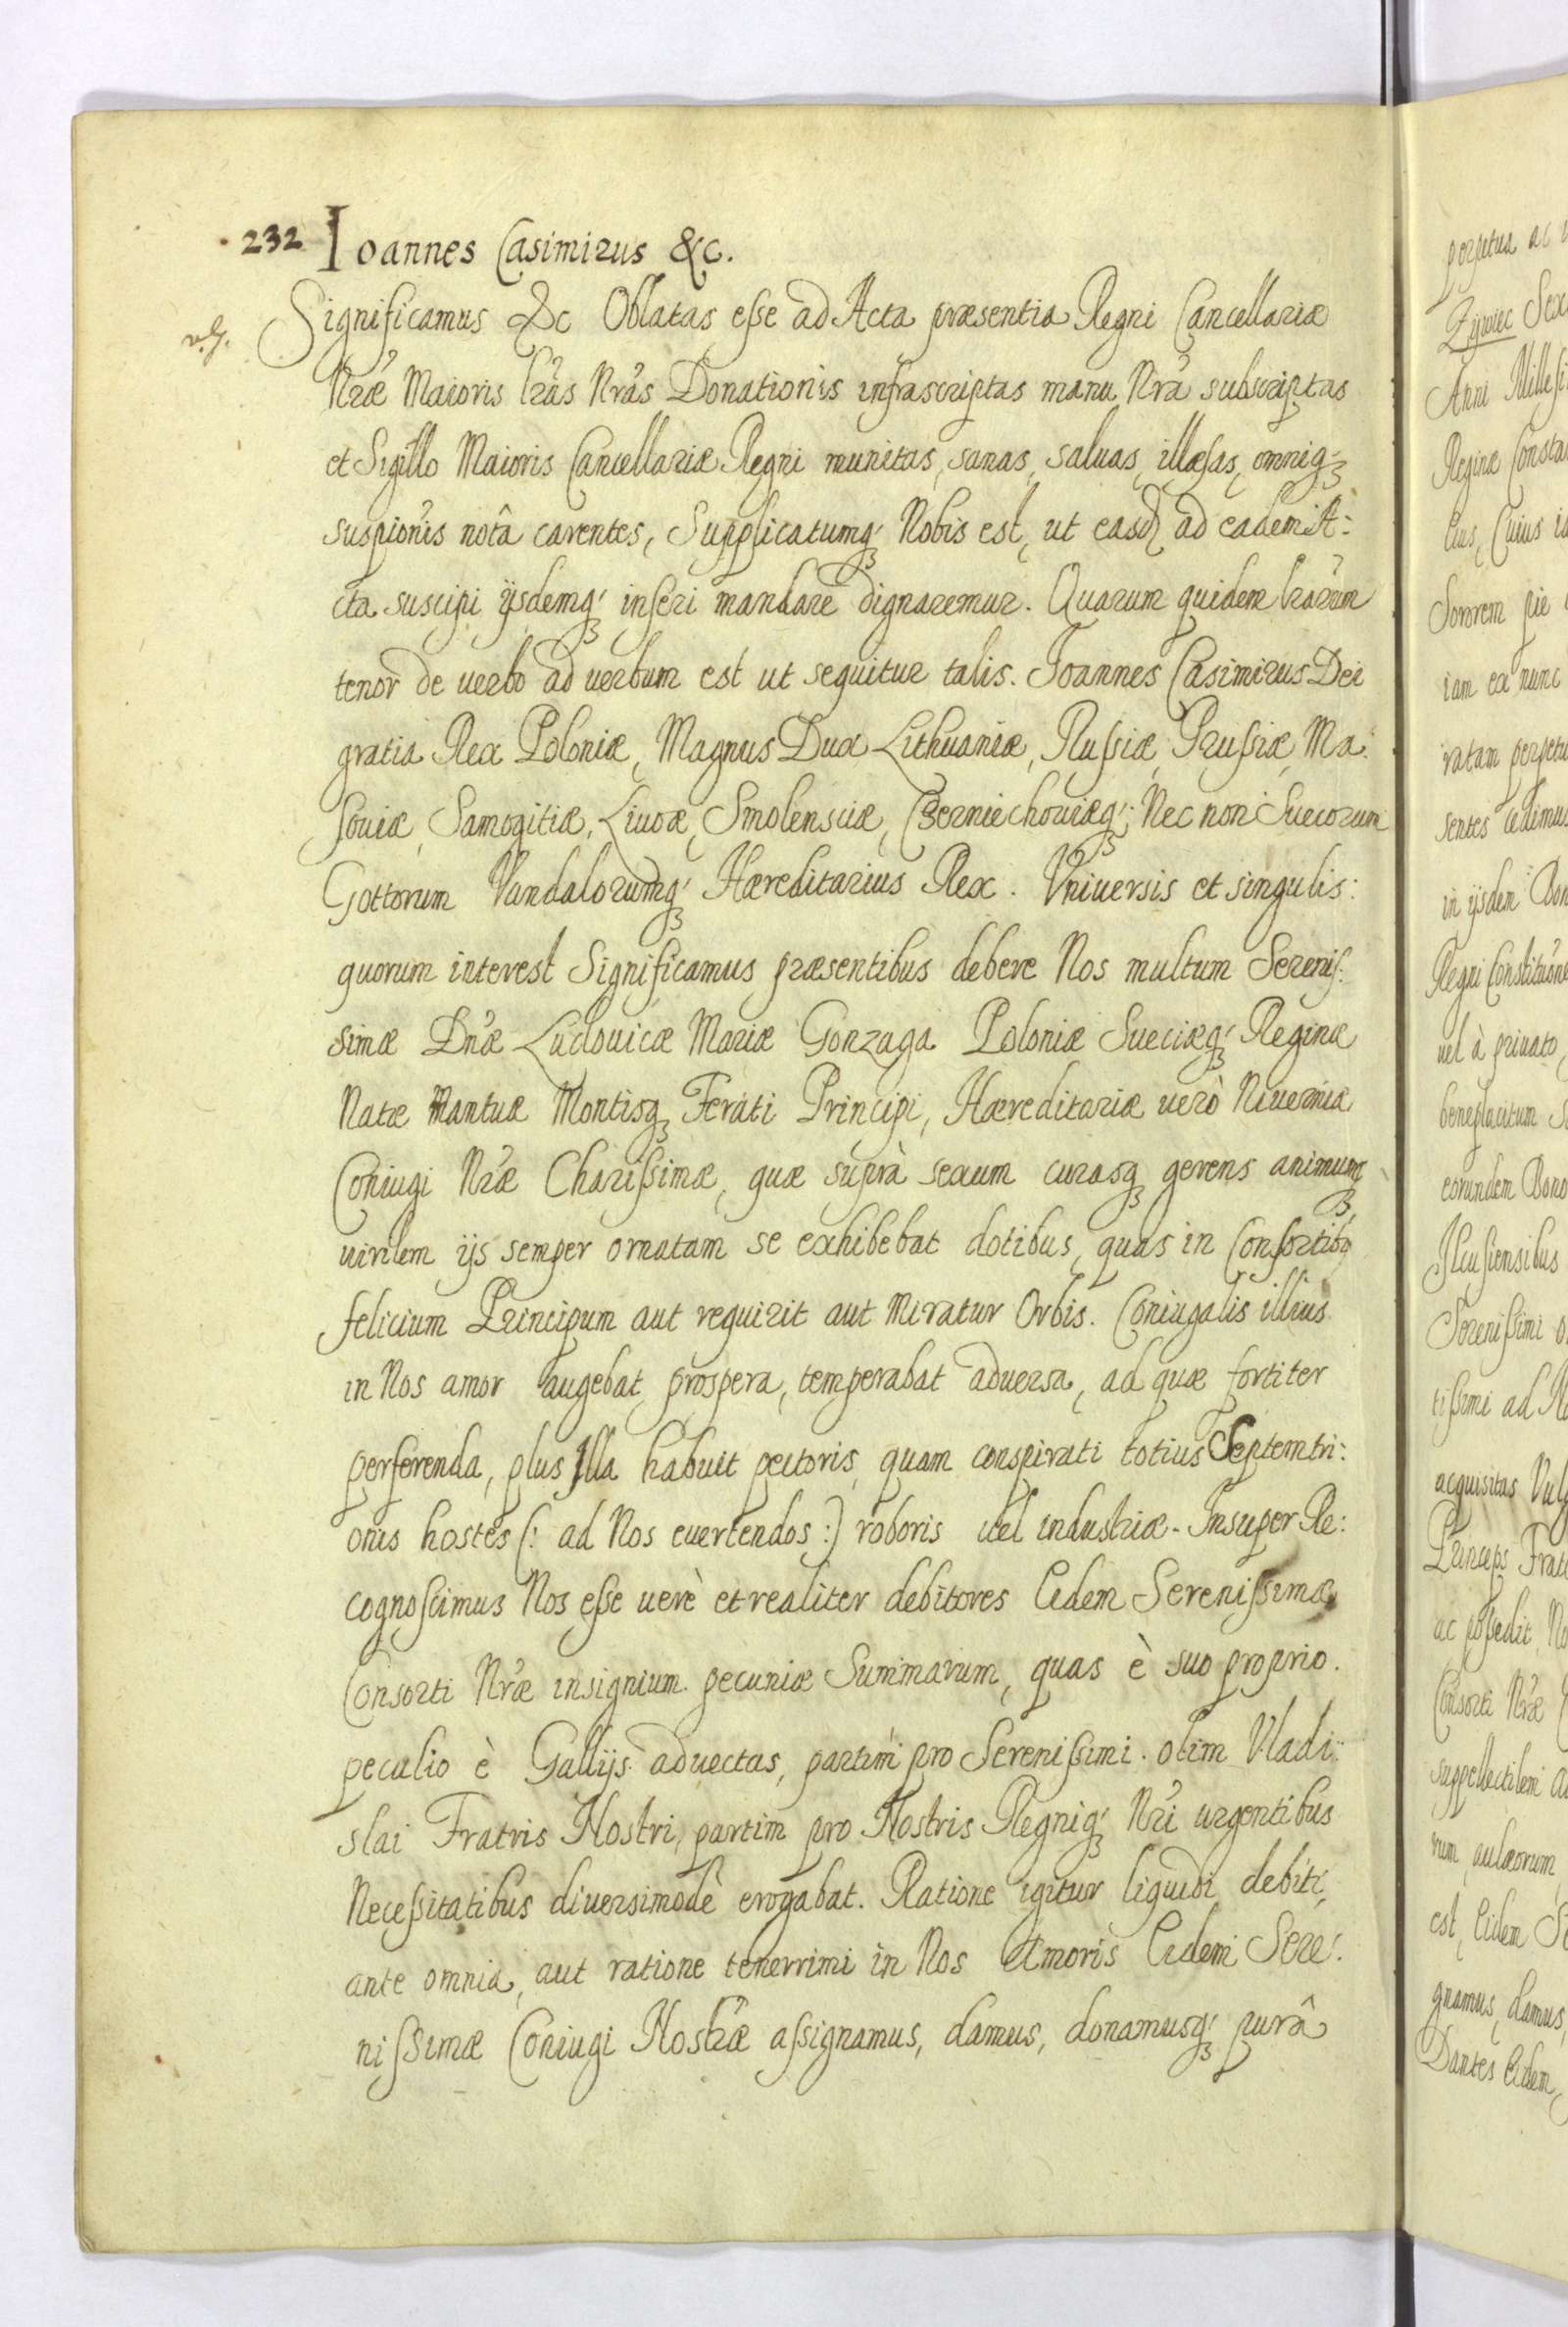 232 Ioannes Casimirus &c.
Significamus &c Oblatas esse ad Acta præsentia Regni Cancellariæ
Nræ Maioris lras Nras Donationis infrascriptas manu Nra subscriptas
et Sigillo Maioris Cancellariæ Regni munitas, sanas, saluas, illæsas, omniq
suspionis notâ carentes, Supplicatumq Nobis est, ut easd ad eadem A:
cta suscipi ijsdemq inseri mandare dignaremur. Quarum quidem lrarum
tenor de uerbo ad uerbum est ut sequitur talis. Joannes Casimirus Dei
gratia Rex Poloniæ, Magnus Dux Lithuaniæ, Russiæ, Prussiæ, Ma:
souiæ, Samogitiæ, Liuoæ, Smolensciæ, Czerniechouiæq; Nec non Suecorum
Gottorum Vandalorumq Hæreditarius Rex. Vniuersis et singulis:
quorum interest Significamus præsentibus debere Nos multum Serenis:
simæ Dnæ Ludouicæ Mariæ Gonzaga Poloniæ Sueciæq Reginæ
Natæ Mantuæ Montisq Ferati Principi, Hæreditariæ uerò Niuerniæ
Coniugi Nræ Charissimæ, quæ suprà sexum curasq gerens animumq
uirilem ijs semper ornatam se exhibebat dotibus, quas in Consortibq
felicium Principum aut requirit aut Miratur Orbis. Coniugalis illius
in Nos amor augebat prospera, temperabat aduersa, ad quæ fortiter
perferenda, plus Illa habuit pectoris, quam conspirati totius Septemtri:
onis hostes (: ad Nos euertendos :) roboris uel industriæ. Insuper Re:
cognoscimus Nos esse uerè et realiter debitores Eidem Serenissimæ
Consorti Nræ insignium pecuniæ Summarum, quas è suo proprio
peculio è Gallijs aduectas, partim pro Serenissimi olim Vladi:
slai Fratris Nostri, partim pro Nostris Regniq Nri urgentibus
Necessitatibus diuersimodè erogabat. Ratione igitur liquidi debiti,
ante omnia, aut ratione tenerrimi in Nos Amoris Eidem Sere:
nissimæ Coniugi Nostræ assignamus, damus, donamusq purâ
perpetua ac
Zÿwiec Sex
Anni Millesi
Reginæ Consta
Cuius
Sororem pie
iam ex nunc
ratam perpetu
sentes cedimus
in ijsdem Bon
Regni Constitution
uel à priuato
beneplacitum
eorundem Bono
Ilcusiensibus
Serenissimi
tissimi ad
acquisitas Vul
Princeps Frate
ac possedit No
Consorti Nræ
suppellectilem
rum, aulæorum
est, Eidem
gnamus, damus,
Dantes Eidem